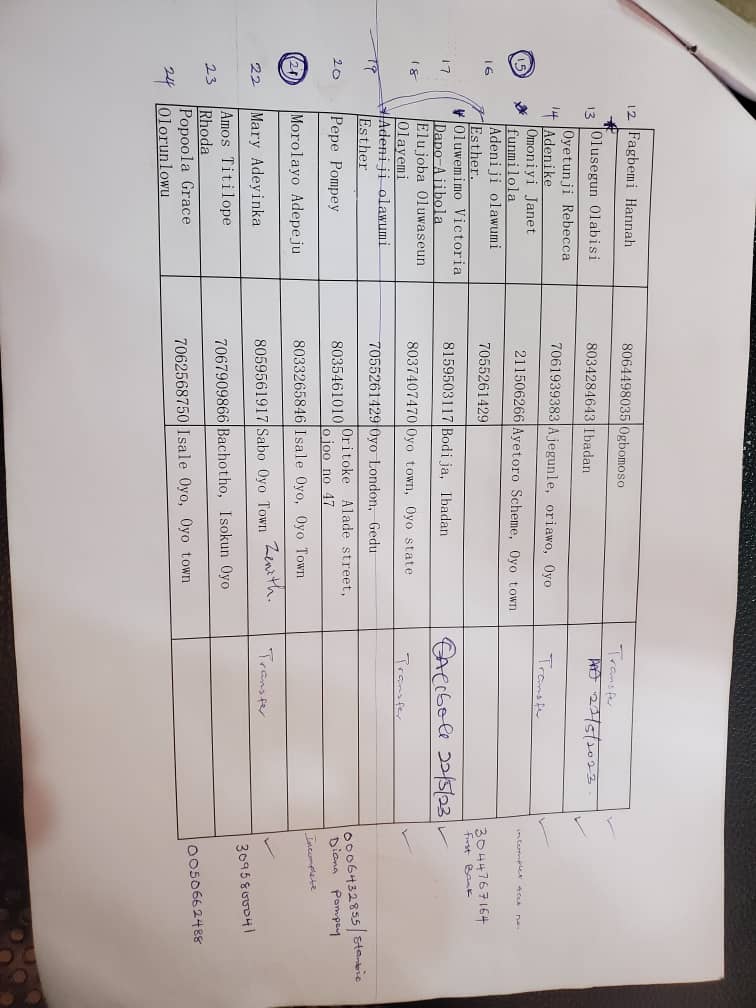 12 Fagbemi Hannah 8064498035 Ogbomoso Transfer ✓
13 Olusegun Olabisi 8034284643 Ibadan 22/5/2023. ✓
14 Oyetunji Rebecca
Adenike 7061939383 Ajegunle, oriawo, Oyo Transfer ✓
15 Omoniyi Janet
funmilola 211506266 Ayetoro Scheme, Oyo town incomplete acct no.
16 Adeniji olawumi
Esther. 7055261429 3044767164
First Bank
17 Oluwemimo Victoria
Dapo-Ajibola 8159503117 Bodija, Ibadan 22/5/23 ✓
18 Elujoba Oluwaseun
Olayemi 8037407470 Oyo town, Oyo state Transfer ✓
19 Adeniji olawumi
Esther 7055261429 Oyo London, Gedu
20 Pepe Pompey 8035461010 Oritoke Alade street, 0006432855/Stanbic
ojoo no 47 Diana Pompey
21 Morolayo Adepeju 8033265846 Isale Oyo, Oyo Town Incomplete
22 Mary Adeyinka 8059561917 Sabo Oyo Town Zenith. Transfer ✓
23 Amos Titilope
Rhoda 7067909866 Bachotho, Isokun Oyo
24 Popoola Grace
Olorunlowu 7062568750 Isale Oyo, Oyo town 0050662488